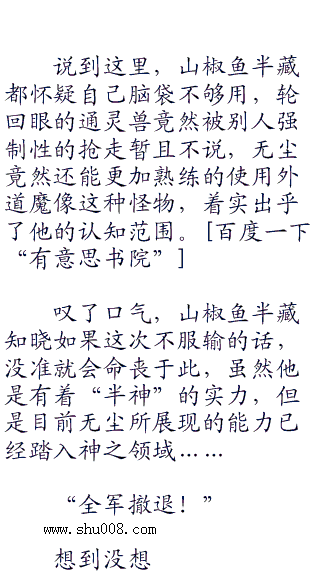 说到这里，山椒鱼半藏
都怀疑自己脑袋不够用，轮
回眼的通灵兽竟然被别人强
制性的抢走暂且不说，无尘
竟然还能更加熟练的使用外
道魔像这种怪物，着实出乎
了他的认知范围。[百度一下
“有意思书院”]
叹了口气，山椒鱼半藏
知晓如果这次不服输的话，
没准就会命丧于此，虽然他
是有着“半神”的实力，但
是目前无尘所展现的能力已
经踏入神之领域……
“全军撤退！”
www.shu008.com
想到没想